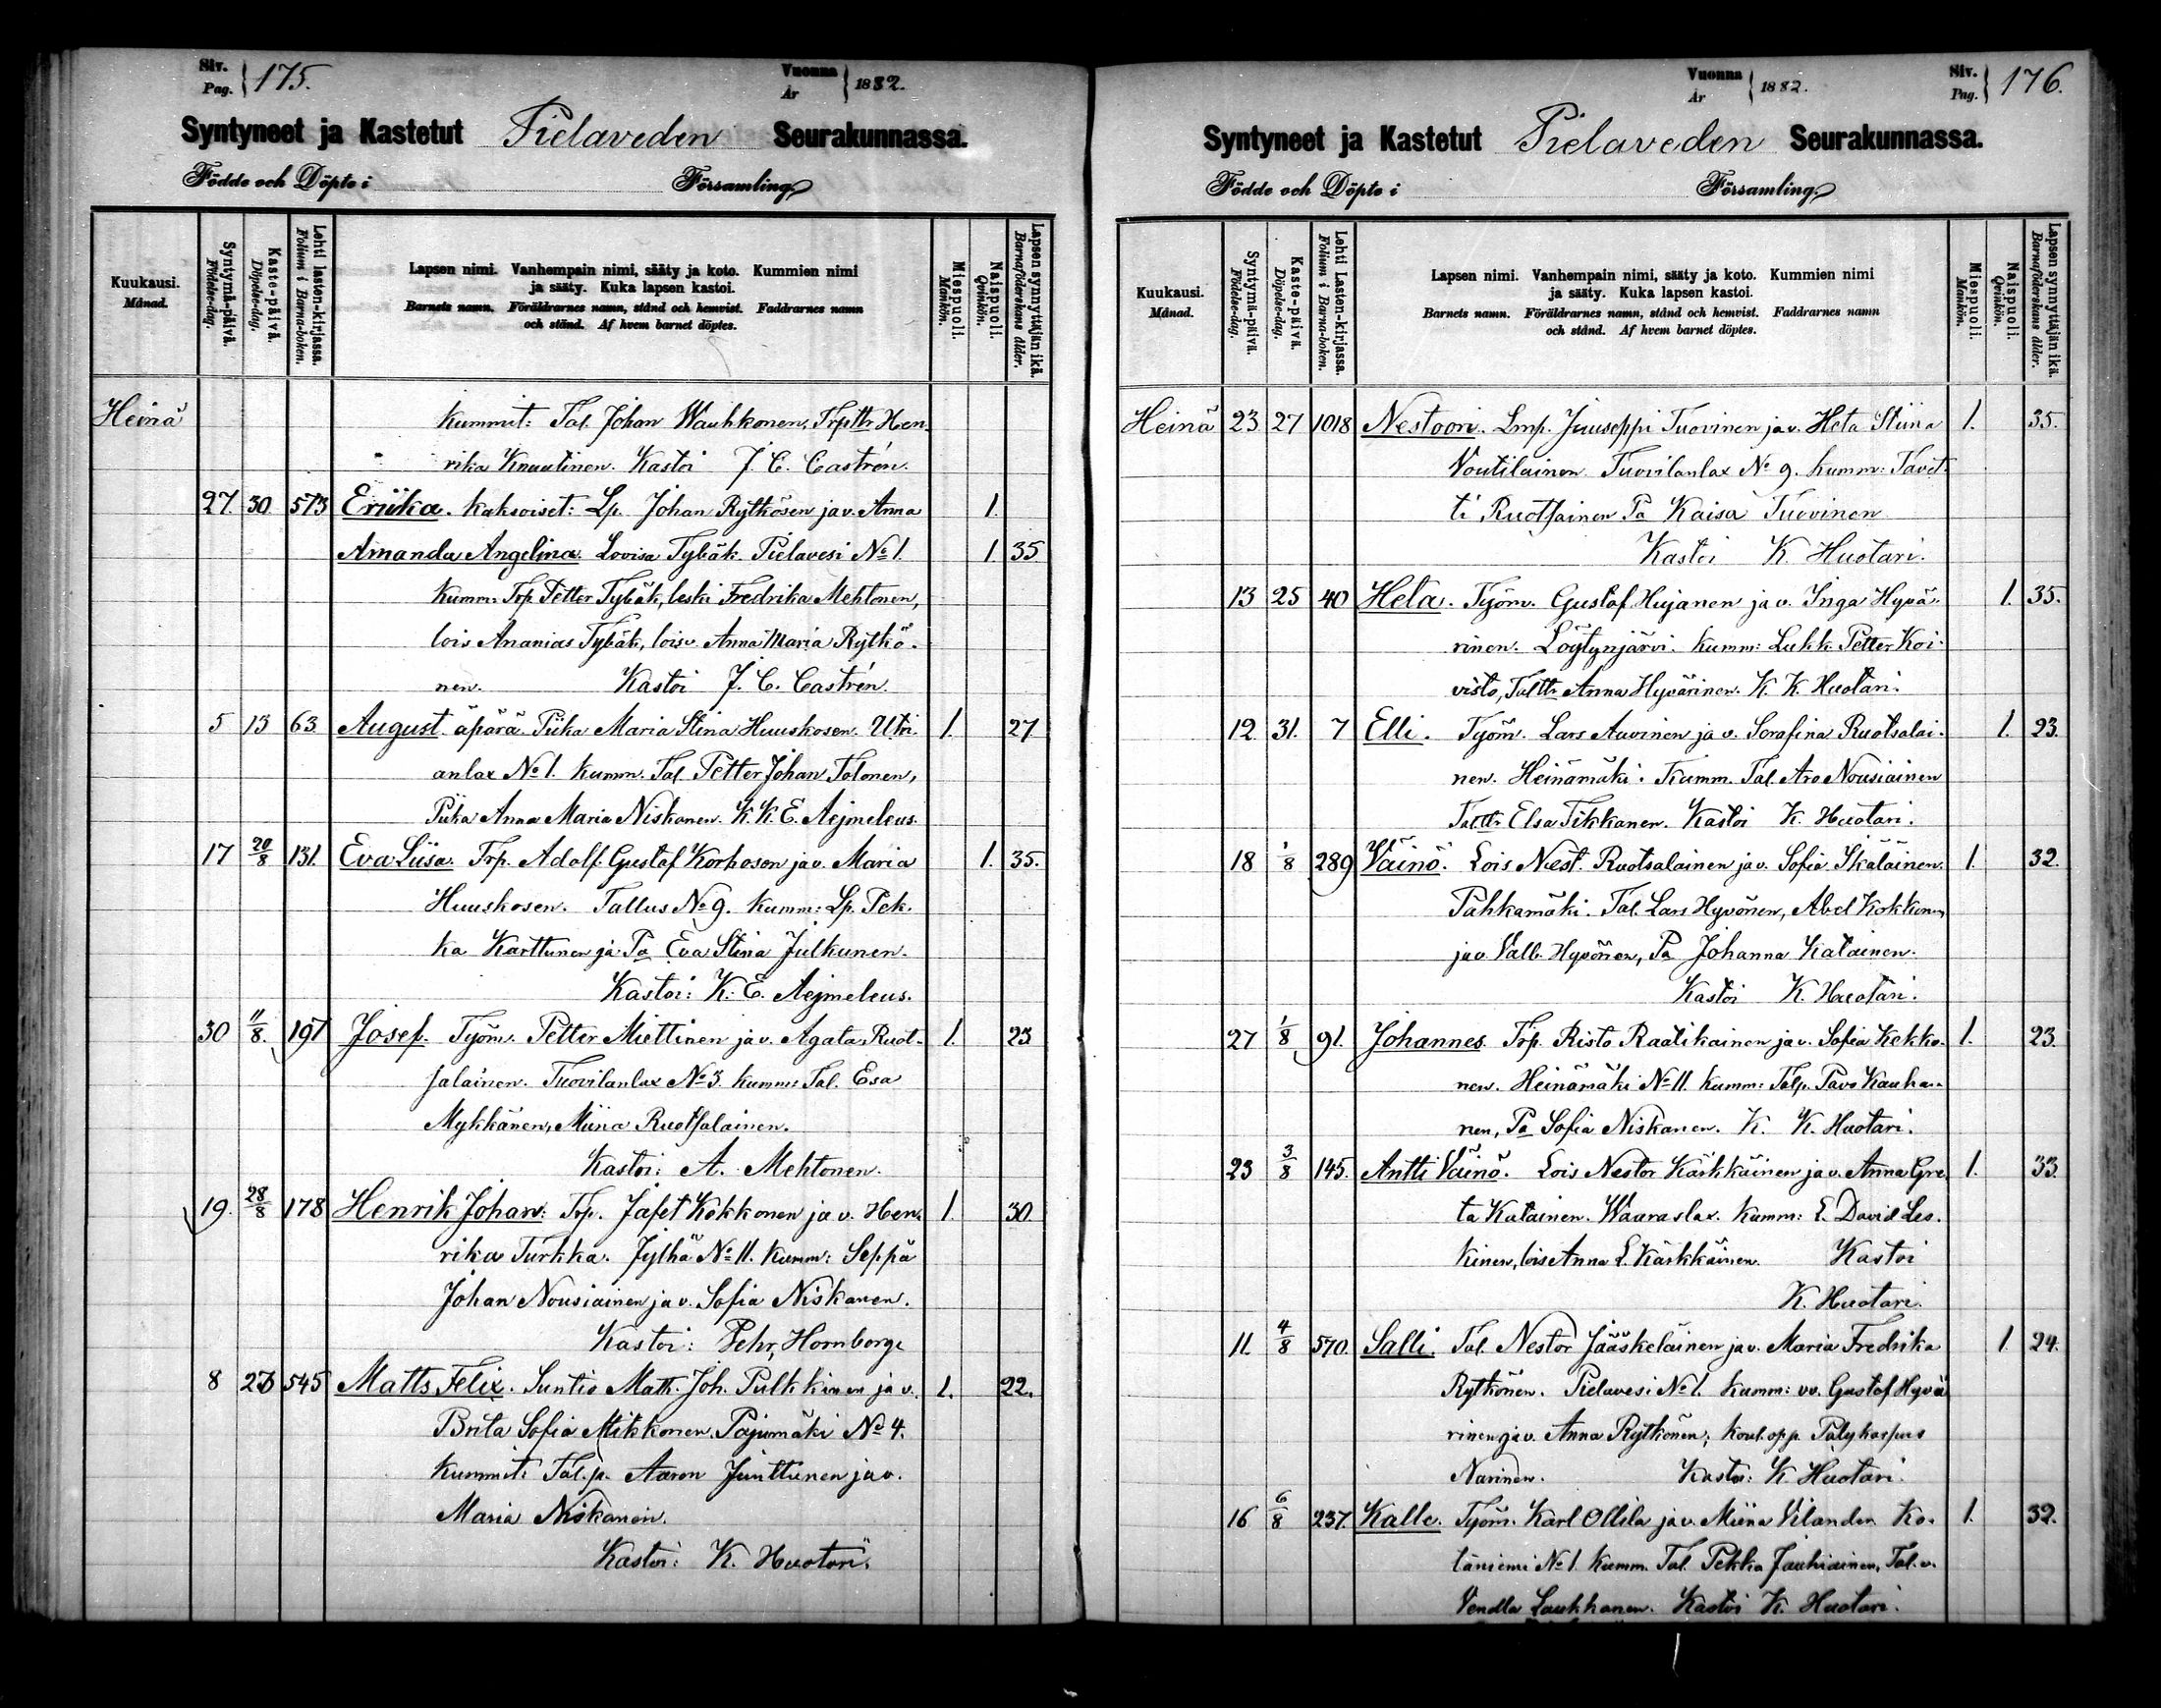 Siv. Pag. 175.
Vuonna År 1882.
Syntyneet ja Kastetut Pielaveden Seurakunnassa.
Födde och Döpte i Församling
Kuukausi. Månad.
Syntymä-päivä. Födelse-dag.
Kaste-päivä. Döpelse-dag.
Lehti lasten-kirjassa. Folium i Barna-boken.
Lapsen nimi. Vanhempain nimi, sääty ja koto. Kummien nimi
ja sääty. Kuka lapsen kastoi.
Barnets namn. Föräldrarnes namn, stånd och hemvist. Faddrarnes namn
och stånd. Af hvem barnet döptes.
Miespuoli. Mankön.
Naispuoli. Qvinkön.
Lapsen synnyttäjän ikä. Barnaföderskans ålder.
Heinä Kummit: Tal. Johan Wauhkonen, Trpttr Hen-
rika Knuutinen. Kastoi J. C. Castrén.
27. 30. 573 Eriika. kaksoiset: Lp. Johan Rytkösen ja v. Anna 1.
Amanda Angelina. Lovisa Tybäk. Pielavesi No 1. 1. 35.
Kumm: Trp. Petter Tybäk, leski Fredrika Mehtonen,
lois Ananias Tybäk, lois v. Anna Maria Rytkö-
nen. Kastoi J. C. Castrén.
5 13 63. August. äpärä. Piika Maria Stina Huuskosen. Utri- 1. 27
anlax No 1. Kumm. Tal. Petter Johan Tolonen,
Piika Anna Maria Niskanen. K. K. E. Aejmeleus.
17 20/8 131. Eva Liisa. Trp. Adolf Gustaf Korhosen ja v. Maria 1. 35.
Huuskosen. Tallus No 9. Kumm: Lp. Pek-
ka Karttunen ja Pa Eva Stina Julkunen.
Kastoi: K. E. Aejmeleus.
30 11/8. 197 Josef. Työm. Petter Miettinen ja v. Agata Ruot- 1. 23
salainen. Tuovilanlax No 3. Kumm: Tal. Esa
Mykkänen, Miina Ruotsalainen.
Kastoi: A. Mehtonen.
19. 28/8 178 Henrik Johan: Trp. Jafet Kokkonen ja v. Hen- 1. 30.
rika Turkka. Jylhä No 11. Kumm: Seppä
Johan Nousiainen ja v. Sofia Niskanen.
Kastoi: Pehr Hornborg
8 545 Matts Felix. Suntio Math. Joh. Pulkkinen ja v. 1. 22.
Brita Sofia Mikkonen. Pajumäki No 4.
Kummit: Tal. p. Aaron Junttunen ja v.
Maria Niskanen.
Kastoi: K. Huotari.
Vuonna År 1882.
Siv. Pag. 176.
Syntyneet ja Kastetut Pielaveden Seurakunnassa.
Födde och Döpte i Församling
Kuukausi. Månad.
Syntymä-päivä. Födelse-dag.
Kaste-päivä. Döpelse-dag.
Lehti Lasten-kirjassa. Folium i Barna-boken.
Lapsen nimi. Vanhempain nimi, sääty ja koto. Kummien nimi
ja sääty. Kuka lapsen kastoi.
Barnets namn. Föräldrarnes namn, stånd och hemvist. Faddrarnes namn
och stånd. Af hvem barnet döptes.
Miespuoli. Mankön.
Naispuoli. Qvinkön.
Lapsen synnyttäjän ikä. Barnaföderskans ålder.
Heinä 23 27 1018 Nestoori. Lmp. Juuseppi Tuovinen ja v. Heta Stiina 1. 35.
Voutilainen. Tuovilanlax No 9. Kumm: Tavet-
ti Ruotsainen Pa Kaisa Tuovinen
Kastoi K. Huotari.
13 25 40 Heta. Työm. Gustaf Hujanen ja v. Inga Hyvä- 1. 35.
rinen. Löytynjärvi. Kumm: Lukk. Petter Koi-
visto, Talttr. Anna Hyvärinen. K. K. Huotari.
12. 31. 7 Elli. Työm. Lars Auvinen ja v. Serafina Ruotsalai- 1. 23.
nen. Heinämäki. Kumm. Tal. Aro Nousiainen
Talttr. Elsa Tikkanen. Kastoi K. Huotari.
18 1/8 289 Väinö. Lois Nest. Ruotsalainen ja v. Sofia Ikäläinen. 1. 32.
Pahkamäki. Tal. Lars Hyvönen, Abel Kokkonen
ja v. Valb. Hyvönen, Pa Johanna Katainen.
Kastoi K. Huotari.
27 1/8 91. Johannes. Trp. Risto Raatikainen ja v. Sofia Kekko- 1. 23.
nen. Heinämäki No 11. Kumm: Talp. Pavo Kauha-
nen, Pa Sofia Niskanen. K. K. Huotari.
23 3/8 145. Antti Väinö. Lois Nestor Kärkkäinen ja v. Anna Gre- 1. 33.
ta Katainen. Waaraslax. Kumm: L. David Les-
kinen, lois Anna L. Kärkkäinen. Kastoi
K. Huotari.
11. 4/8 570. Salli. Tal. Nestor Jääskeläinen ja v. Maria Fredrika 1. 24.
Rytkönen. Pielavesi No 1. Kumm: vv. Gustaf Hyvä
rinen ja v. Anna Rytkönen, koul. opp. Polykarpus
Narinen. Kastoi: K. Huotari.
16 6/8 237. Kalle. Työm. Karl Ollila ja v. Miina Vilanden Ko- 1. 32.
täniemi No 1. Kumm. Tal. Pekka Jauhiainen, Tal. v.
Vendla Laukkanen. Kastoi K. Huotari.